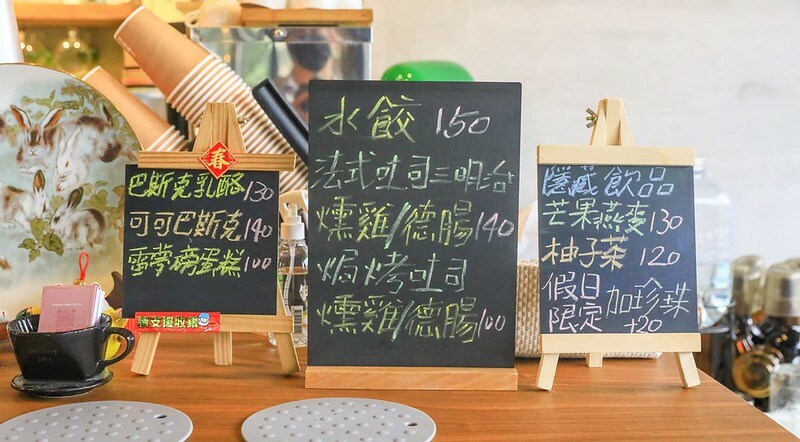 春
巴斯克乳酪130
可可巴斯克140
雷夢磅蛋糕100
水餃 150
法式吐司三明治
燻雞/德腸140
焗烤吐司
燻雞/德腸100
隱藏飲品
芒果燕麥130
柚子茶 120
假日限定 加珍珠+20